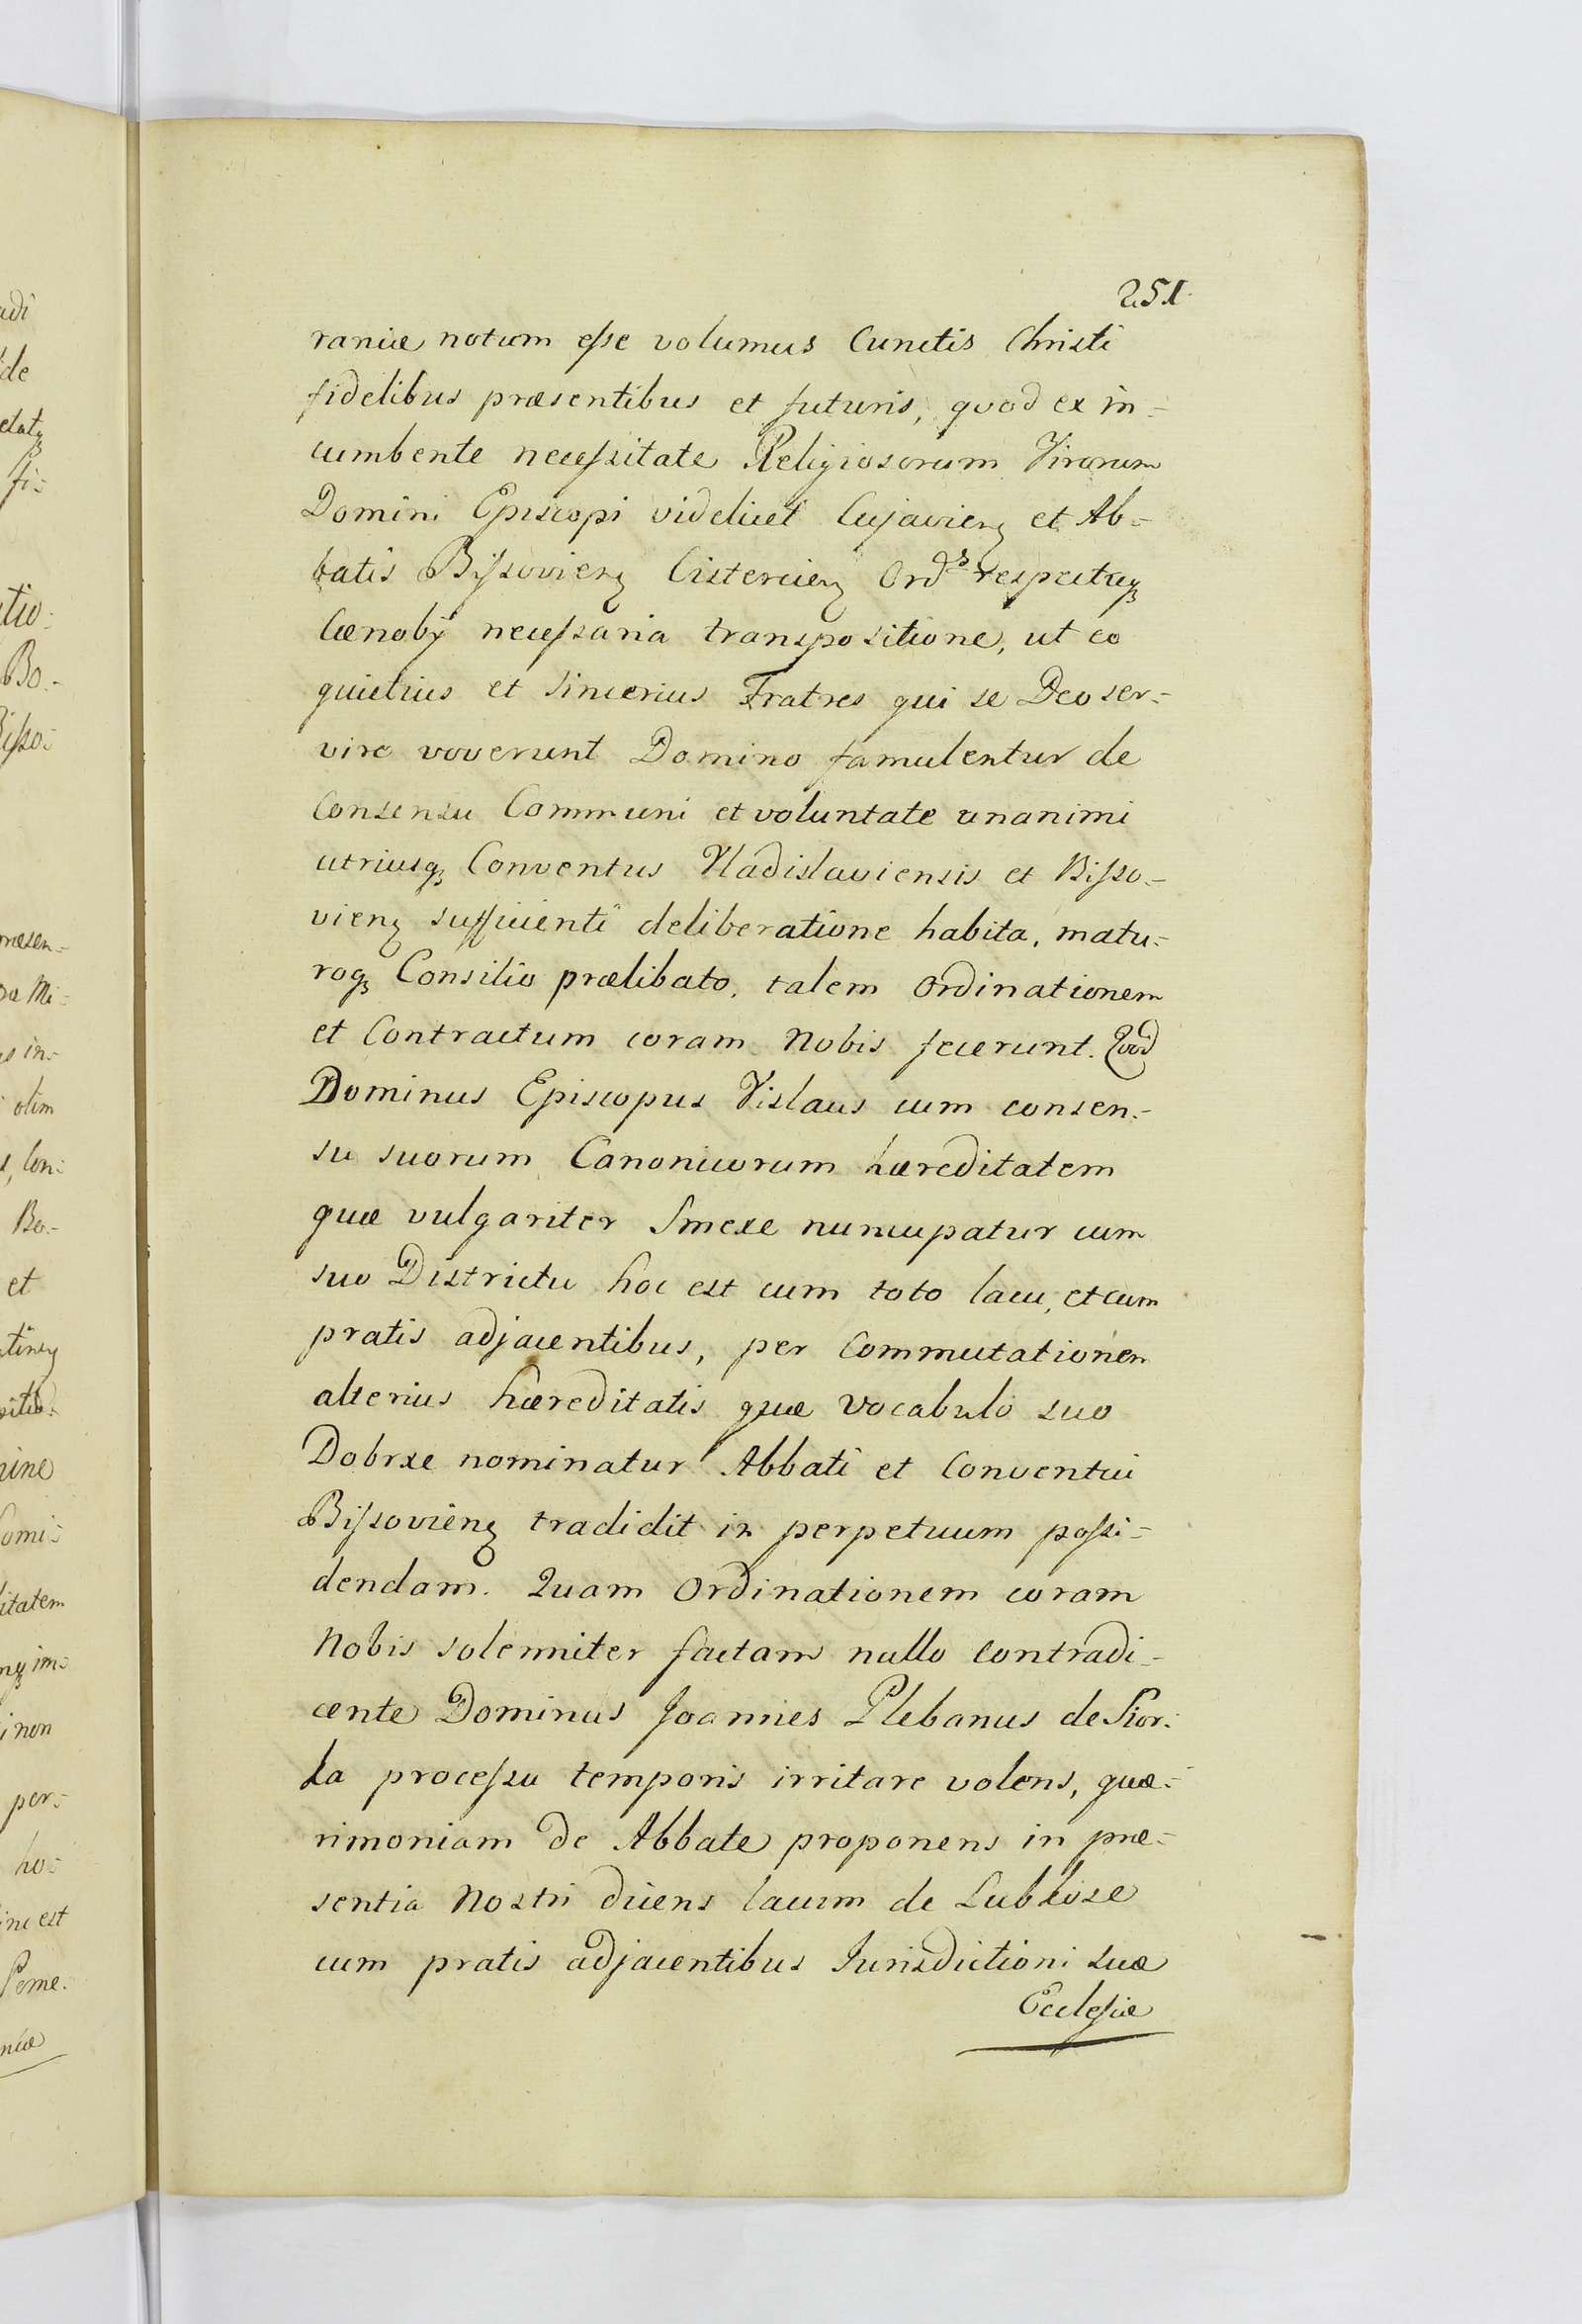 251
raniæ notum esse volumus Cunctis Christi
fidelibus præsentibus et futuris, quod ex in-
cumbente necessitate Religiosorum Virorum
Domini Episcopi videlicet Cujavien et Ab-
batis Byssovien Cistercien Ordˢ respectuqꝫ
Cœnobÿ necessaria transpositione, ut eo
quietius et sincerius Fratres qui se Deo ser-
vire voverunt Domino famulentur de
Consensu Communi et voluntate unanimi
utriusqꝫ Conventus Vladislaviensis et Bisso-
vien sufficienti deliberatione habita, matu-
roqꝫ Consilio prælibato, talem Ordinationem
et Contractum coram Nobis fecerunt. Qvod
Dominus Episcopus Vislaus cum consen-
su suorum Canonicorum hæreditatem
quæ vulgariter Smexe nuncupatur cum
suo Districtu hoc est cum toto lacu, et cum
pratis adjacentibus, per Commutationem
alterius hæreditatis quæ Vocabulo suo
Dobrxe nominatur Abbati et Conventui
Byssovien tradidit in perpetuum possi-
dendam. Quam Ordinationem coram
Nobis solenniter factam nullo Contradi-
cente Dominus Joannes Plebanus de
processu temporis irritare volens, quæ-
rimoniam de Abbate proponens in præ-
sentia Nostri dicens lacum de
cum pratis adjacentibus Jurisdictioni suæ
Ecclesiæ
adi
de
fi-
Bo-
et
olim
Bo-
i non
per-
ho-
inc est
Pome-
niæ